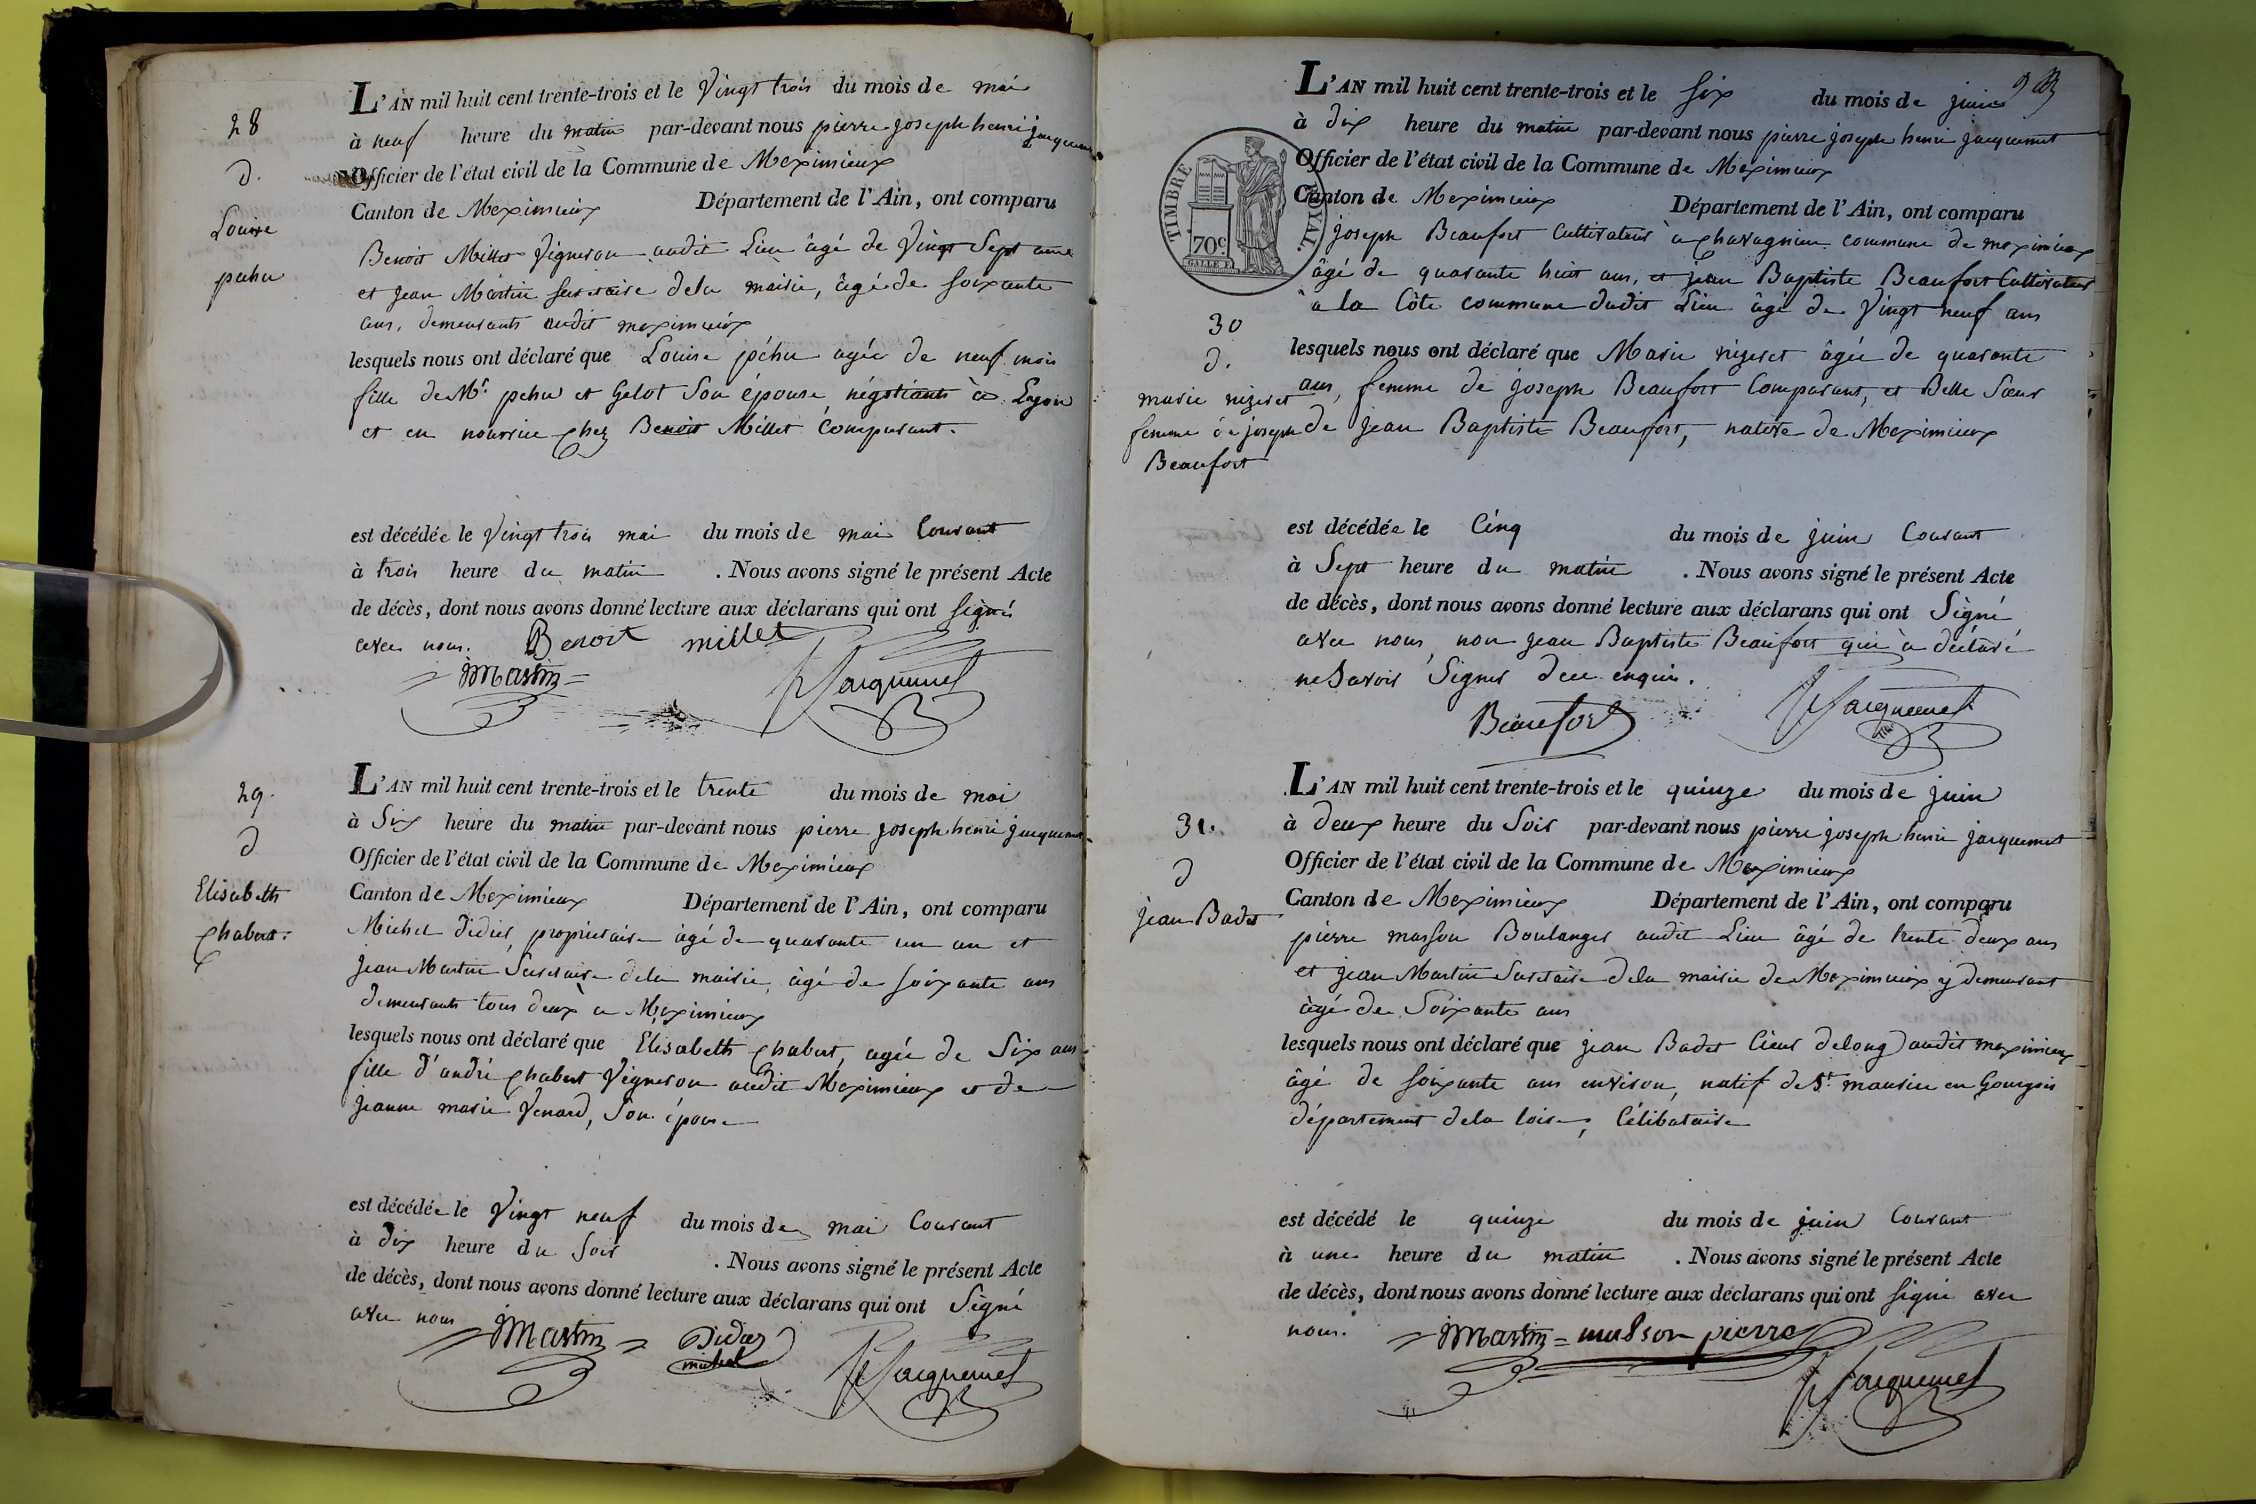 28
d.
Louise
pehu
L'AN mil huit cent trente-trois et le Vingt trois du mois de mai
à neuf heure du matin par-devant nous pierre joseph henri jacquemet
Officier de l'état civil de la Commune de Meximieux
Canton de Meximieux Département de l'Ain, ont comparu
Benoit Millet Vigneron audit Lieu âgé de Vingt Sept ans
et jean Martin Secretaire dela mairie, âgé de soixante
ans, demeurants audit meximieux
lesquels nous ont déclaré que Louise péhu agée de neuf mois
fille de Mr. pehu et Gelot Son épouse, négotiants à Lyon
et en nourrice chez Benoit Millet Comparant.
est décédée le Vingt trois mai du mois de mai Courant
à trois heure du matin . Nous avons signé le présent Acte
de décès, dont nous avons donné lecture aux déclarans qui ont Signé
avec nous. Benoit millet
JMartin Jacquemet
29.
d
Elisabeth
Chabert.
L'AN mil huit cent trente-trois et le trente du mois de mai
à Six heure du matin par-devant nous pierre joseph henri jacquemet
Officier de l'état civil de la Commune de Meximieux
Canton de Meximieux Département de l'Ain, ont comparu
Michel Didier, proprietaire âgé de quarante un an et
jean Martin Secretaire dela mairie, âgé de soixante ans
demeurants tous deux a Meximieux
lesquels nous ont déclaré que Elisabeth Chabert, agée de Six ans
fille d'andré Chabert Vigneron audit Meximieux et de
jeanne marie Venard, Son épouse
est décédée le Vingt neuf du mois de mai Courant
à dix heure du Soir . Nous avons signé le présent Acte
de décès, dont nous avons donné lecture aux déclarans qui ont Signé
avec nous JMartin Didier
michel Jacquemet
TIMBRE ROYAL.
70c
30
d.
marie nizeret
femme de joseph
Beaufort
L'AN mil huit cent trente-trois et le six du mois de juin
à dix heure du matin par-devant nous pierre joseph henri jacquemet
Officier de l'état civil de la Commune de Meximieux
Canton de Meximieux Département de l'Ain, ont comparu
joseph Beaufort Cultivateur à Chavagnieu commune de meximieux
âgé de quarante huit ans, et jean Baptiste Beaufort Cultivateur
à la Côte commune dudit Lieu âgé de Vingt neuf ans
lesquels nous ont déclaré que Marie nizeret âgée de quarante
ans, femme de joseph Beaufort Comparant, et Belle Sœur
de jean Baptiste Beaufort, native de Meximieux
est décédée le Cinq du mois de juin Courant
à Sept heure du matin . Nous avons signé le présent Acte
de décès, dont nous avons donné lecture aux déclarans qui ont Signé
avec nous, non jean Baptiste Beaufort qui à déclaré
ne Savoir Signer de ce enquis.
Beaufort Jacquemet
31.
d
jean Badet
L'AN mil huit cent trente-trois et le quinze du mois de juin
à deux heure du Soir par-devant nous pierre joseph henri jacquemet
Officier de l'état civil de la Commune de Meximieux
Canton de Meximieux Département de l'Ain, ont comparu
pierre masson Boulanger audit Lieu âgé de trente deux ans
et jean Martin Secretaire dela mairie de Meximieux y demeurant
âgé de Soixante ans
lesquels nous ont déclaré que jean Badet Cieur delong audit meximieux
âgé de soixante ans environ, natif de St. maurice en Gourgois
département dela loire, Célibataire
est décédé le quinze du mois de juin Courant
à une heure du matin . Nous avons signé le présent Acte
de décès, dont nous avons donné lecture aux déclarans qui ont signé avec
nous. JMartin masson pierre
Jacquemet